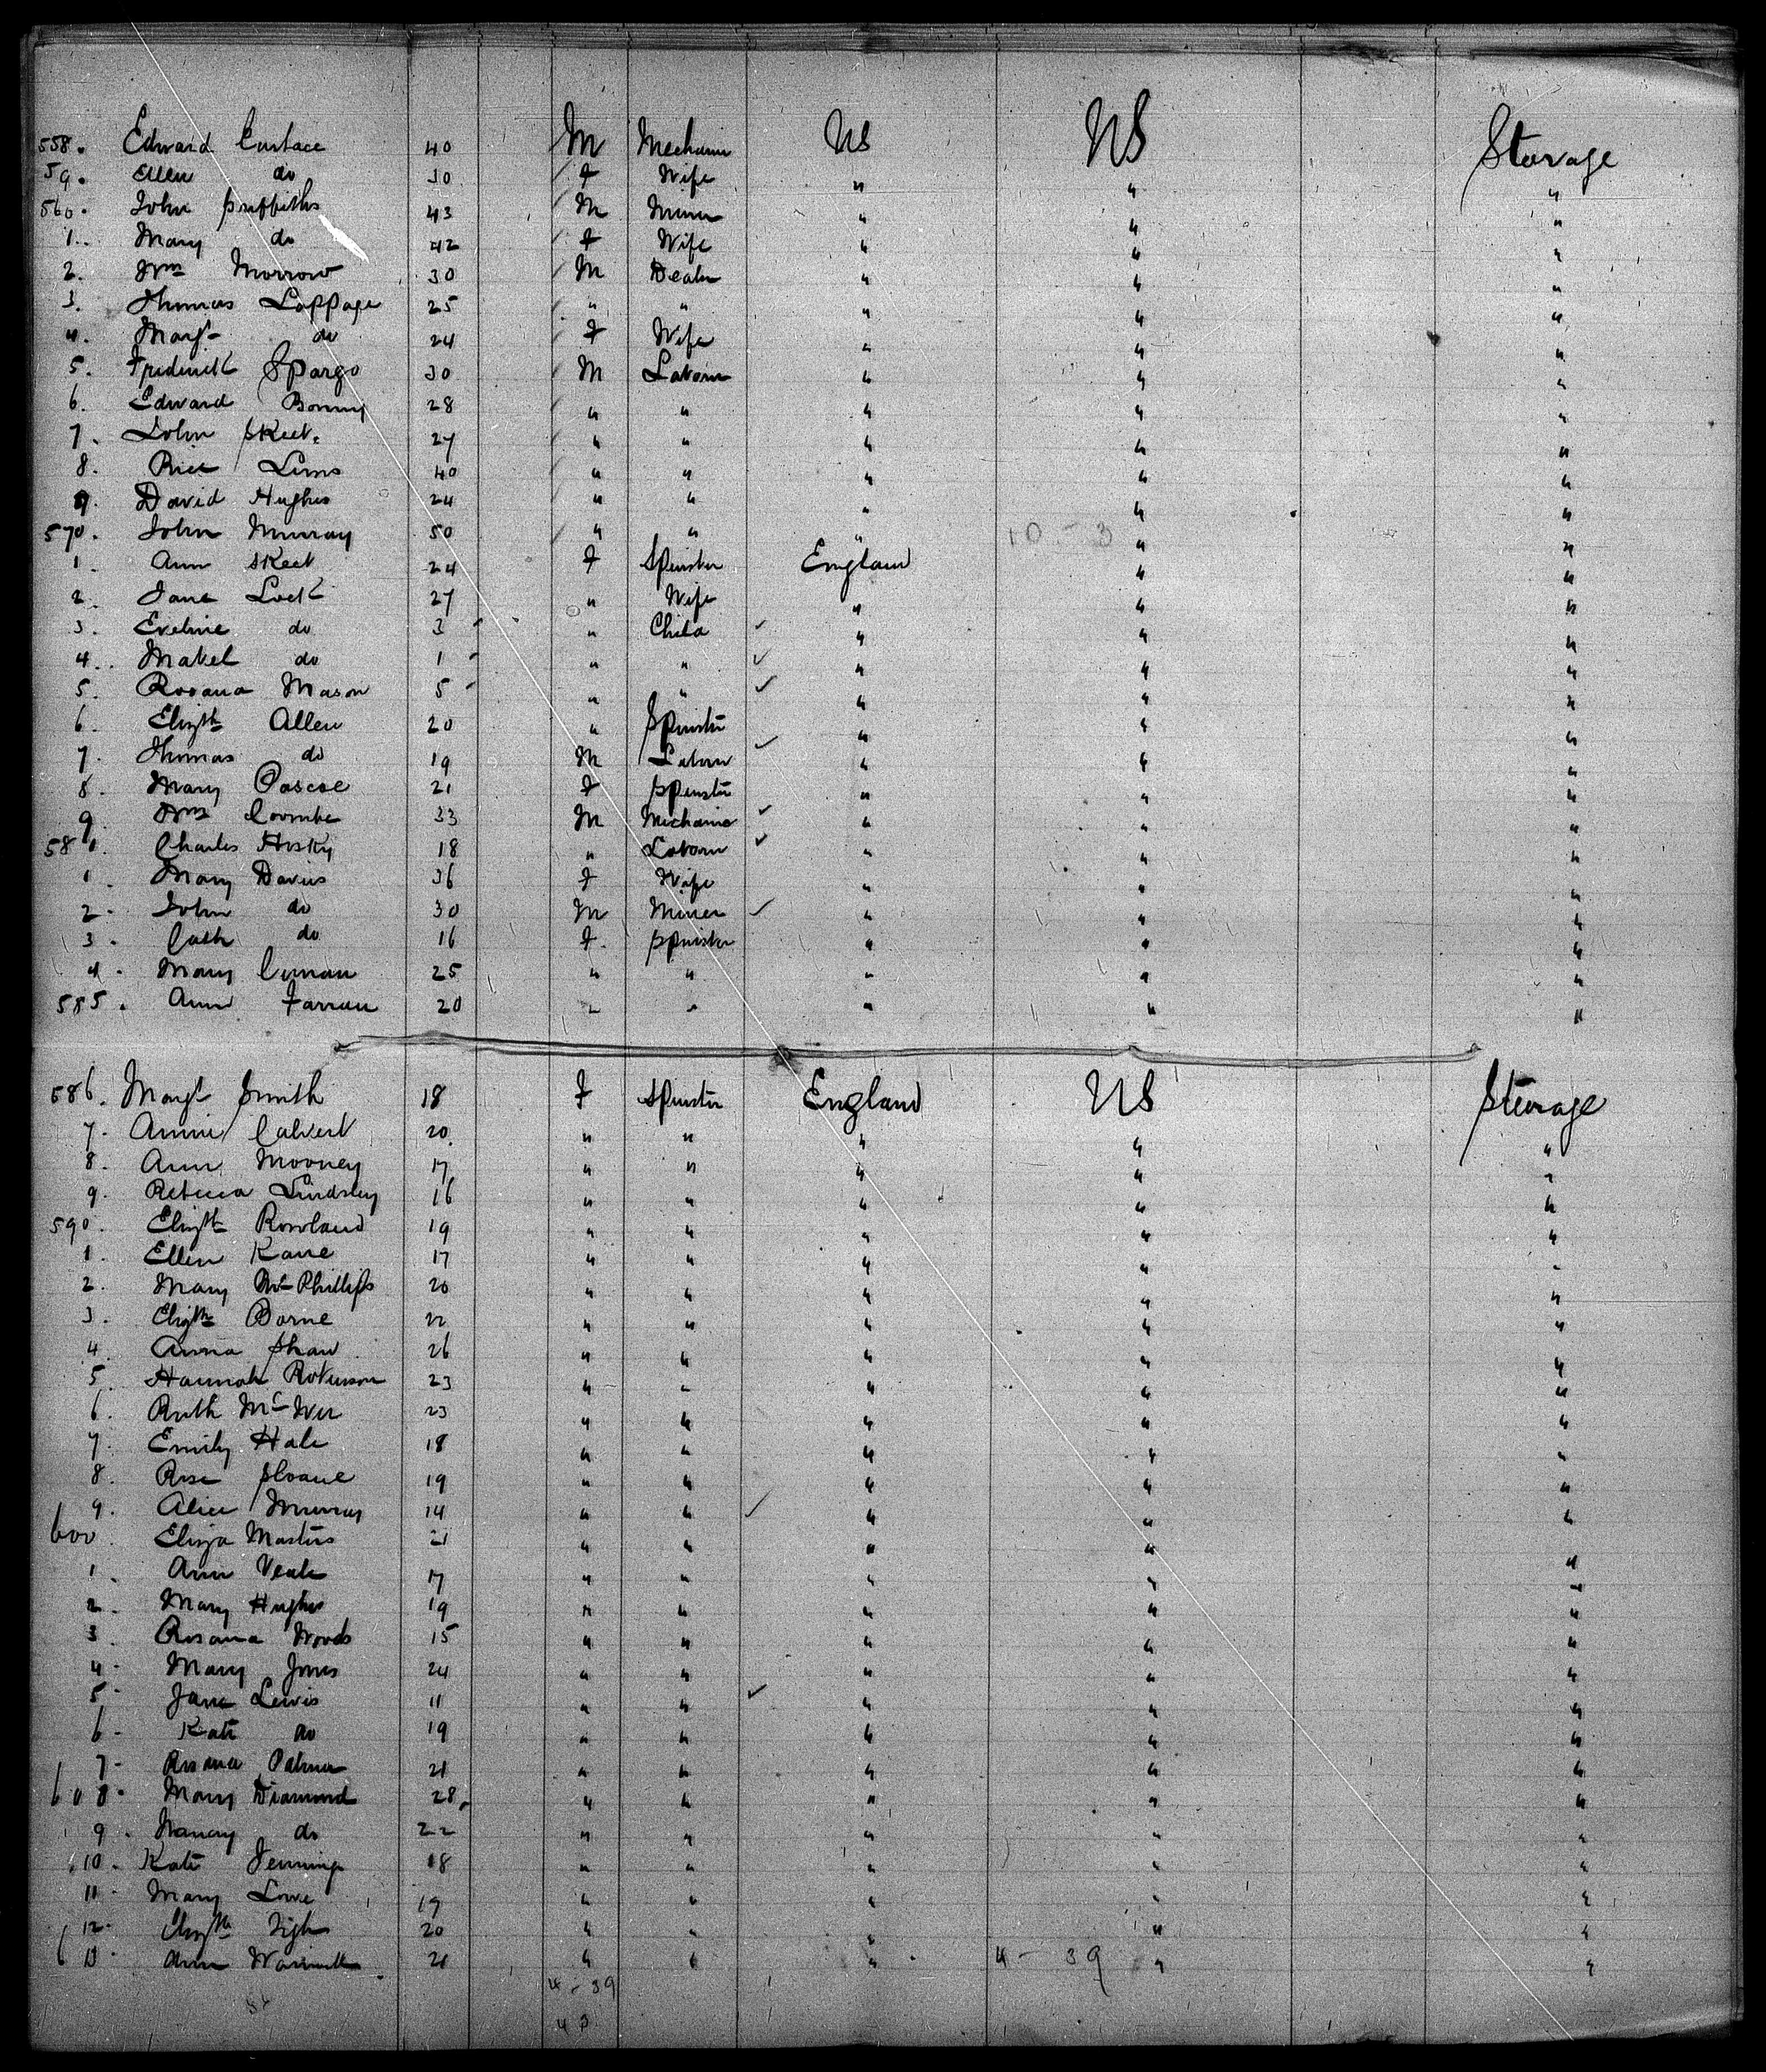 558. Edward Eustace 40 M Mechanic US US Sterage
59. Ellen do 30 F Wife " " "
560. John Griffiths 43 M Miner " " "
1. Mary do 42 F Wife " " "
2. Wm Morrow 30 M Dealer " " "
3. Thomas Lappage 25 " " " " "
4. Margt do 24 F Wife " " "
5. Frederick Spargo 30 M Laborer " " "
6. Edward Bonny 28 " " " " "
7. John Skeet 27 " " " " "
8. Rice 40 " " " " "
9. David Hughes 24 " " " " "
570. John Murray 50 " " " 10 - 3 " "
1. Ann Skeet 24 F Spinster England " "
2. Jane Lock 27 " Wife " " "
3. Eveline do 3 " Child " " "
4. Mabel do 1 " " " " "
5. Rosana Mason 5 " " " " "
6. Elizth Allen 20 " Spinster " " "
7. Thomas do 19 M Laborer " " "
8. Mary Pascoe 21 F Spinster " " "
9. Wm Coombe 33 M Mechanic " " "
580. Charles Hosky 18 " Laborer " " "
1. Mary Davies 36 F Wife " " "
2. John do 30 M Miner " " "
3. Cath do 16 F Spinster " " "
4. Mary 25 " " " " "
585. Ann Farran 20 " " " " "
586. Margt Smith 18 F Spinster England US Sterage
7. Annie Calvert 20 " " " " "
8. Ann Mooney 17 " " " " "
9. Rebecca Lindsley 16 " " " " "
590. Elizth Rowland 19 " " " " "
1. Ellen Kane 17 " " " " "
2. Mary McPhillips 20 " " " " "
3. Elizth Borne 22 " " " " "
4. Anna Shaw 26 " " " " "
5. Hannah Robinson 23 " " " " "
6. Ruth McIver 23 " " " " "
7. Emily Hale 18 " " " " "
8. Rose Sloane 19 " " " " "
9. Alice Murray 14 " " " " "
600. Eliza Masters 21 " " " " "
1. Ann Veale 17 " " " " "
2. Mary Hughes 19 " " " " "
3. Rosana Woods 15 " " " " "
4. Mary Jones 24 " " " " "
5. Jane Lewis 11 " " " " "
6. Kate do 19 " " " " "
7. Rosana Palmer 21 " " " " "
608. Mary Diamond 28 " " " " "
9. Nancy do 22 " " " " "
10. Kate Jennings 18 " " " " "
11. Mary Lowe 19 " " " " "
12. Elizth Tighe 20 " " " " "
613. Ann 21 " " " 4 - 39 " "
4 - 39
43